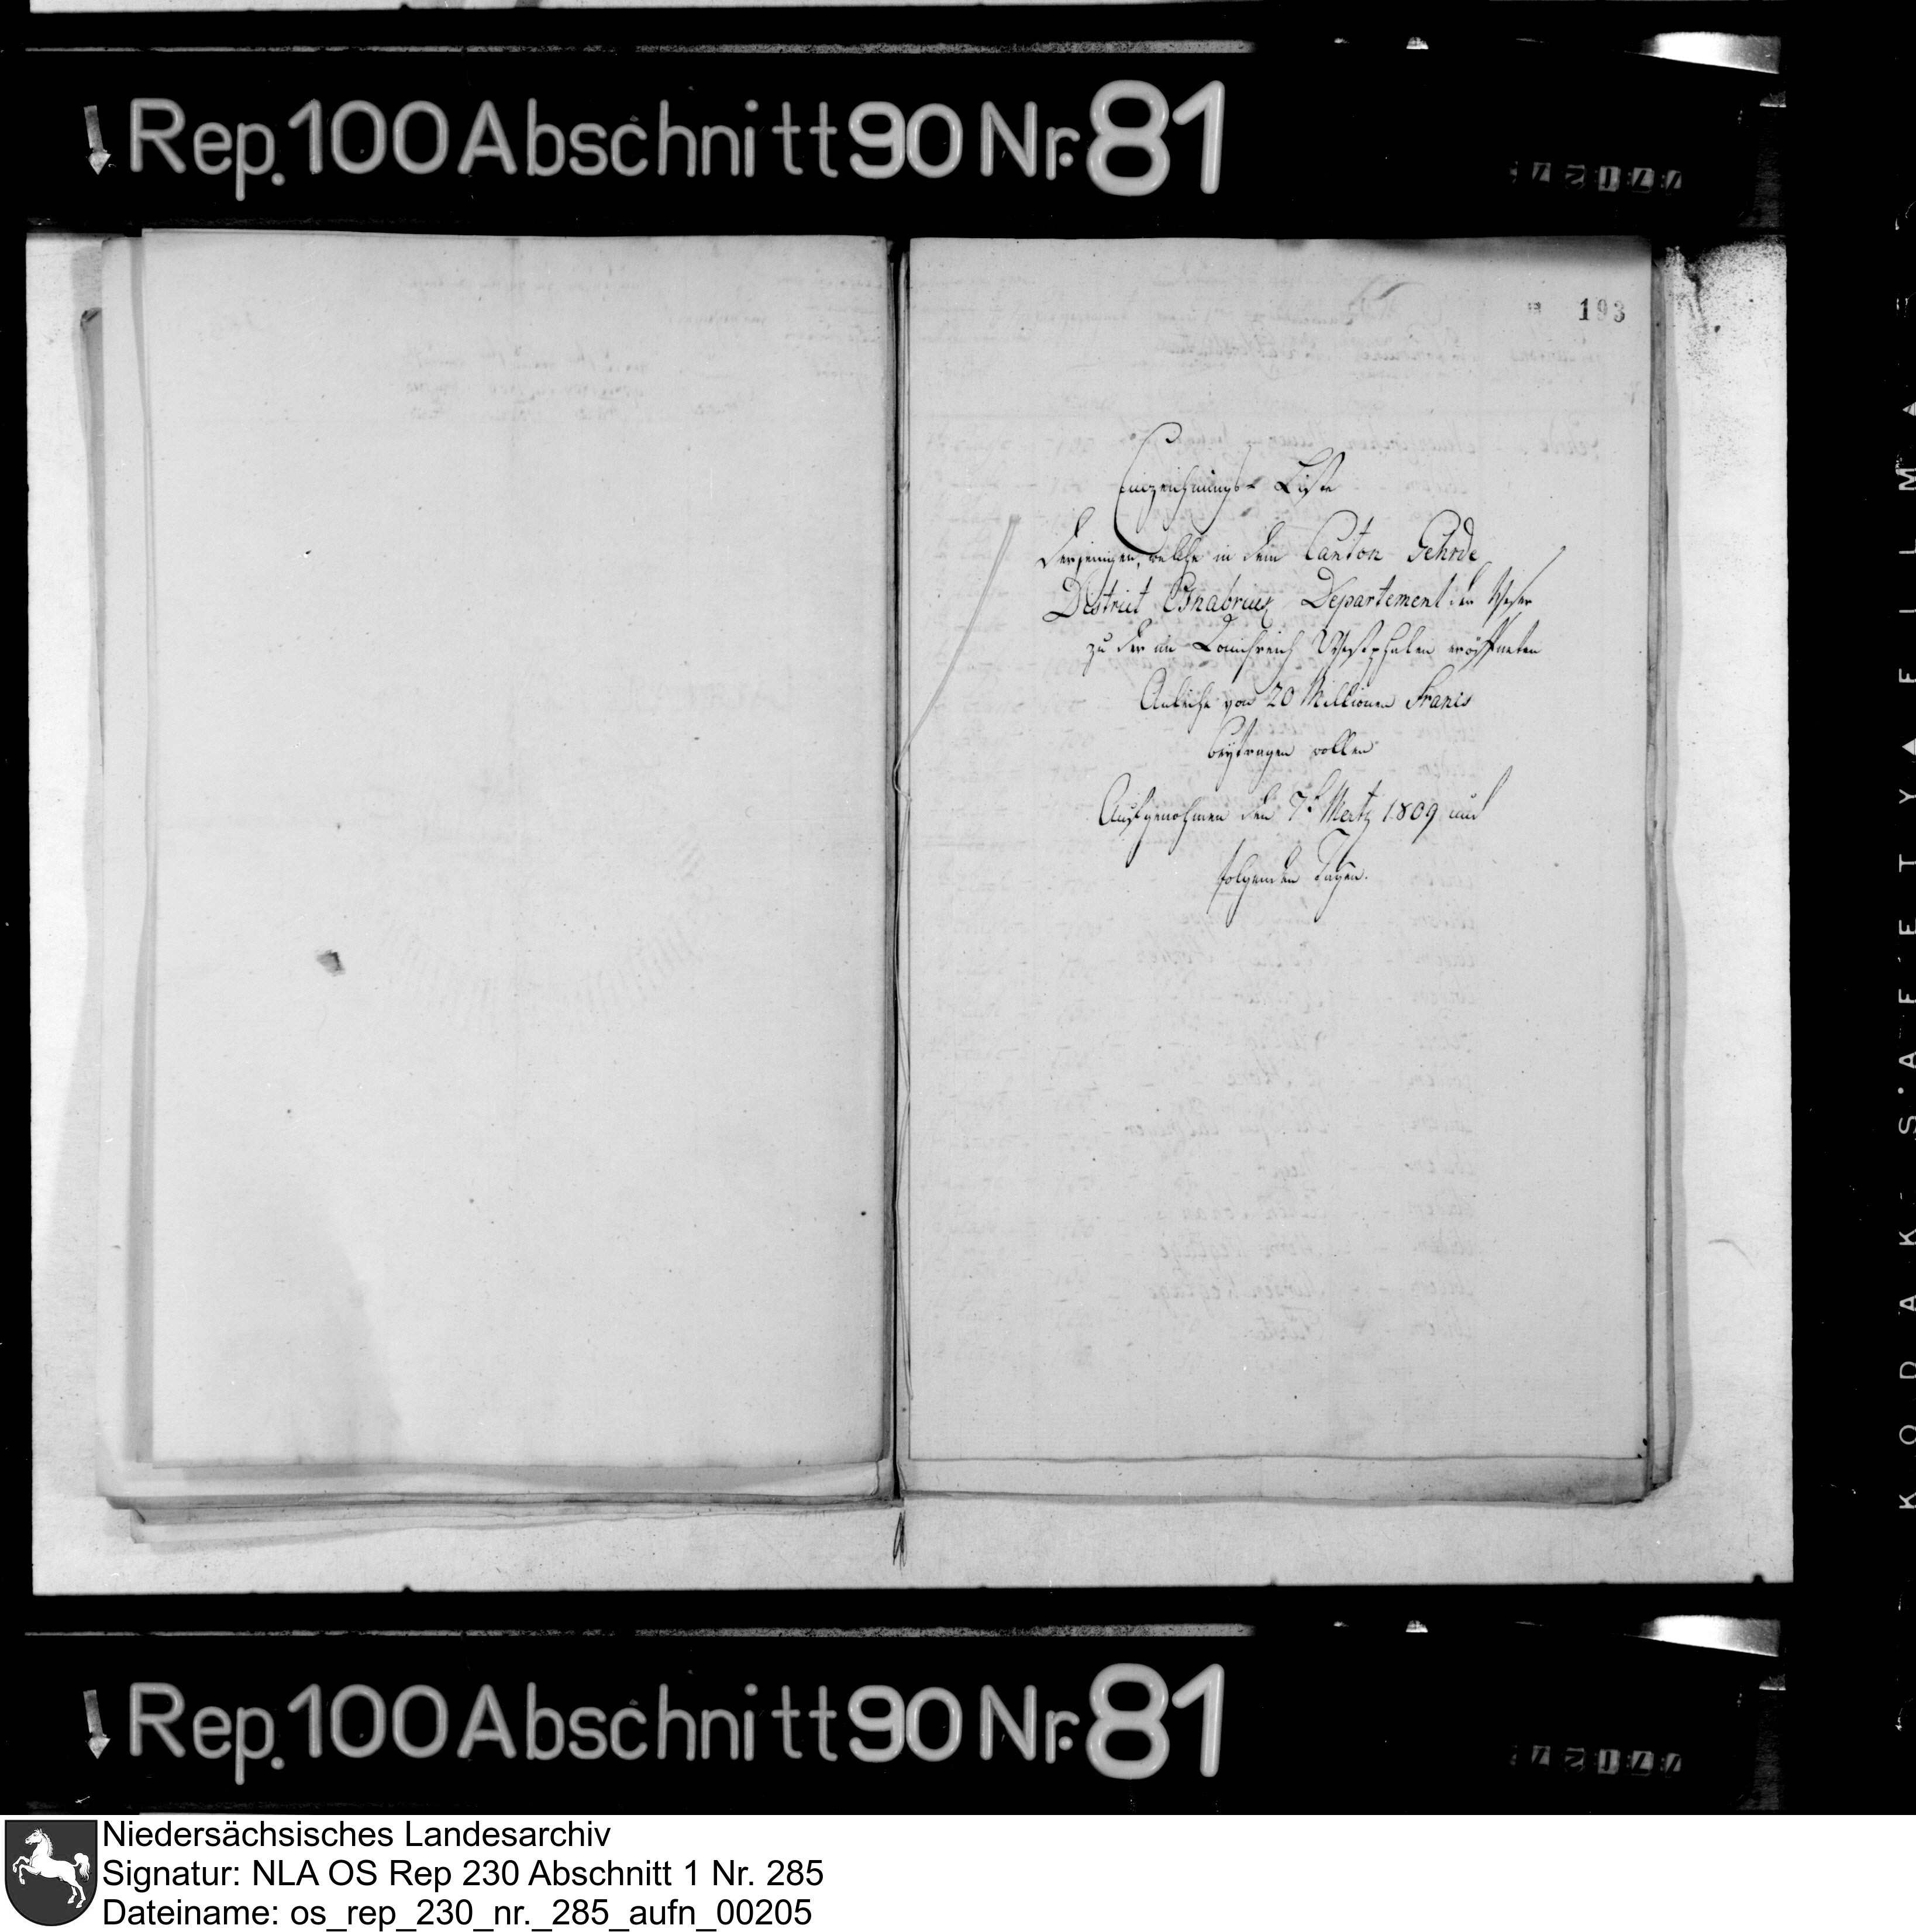 Rep. 100 Abschnitt 90 Nr. 81
193
Einzeichnungs-Liste
derjenigen, welche in dem Canton Gehrde
District Osnabrück Departement der Weser
zu der im Königreich Westphalen eröffneten
Anleihe von 20 Millionen Francs
beytragen wollen
Aufgenohmen den 7t Mertz 1809 und
folgenden Tagen.
KODAK SAFETY FILM
Rep. 100 Abschnitt 90 Nr. 81
Niedersächsisches Landesarchiv
Signatur: NLA OS Rep 230 Abschnitt 1 Nr. 285
Dateiname: os_rep_230_nr._285_aufn_00205